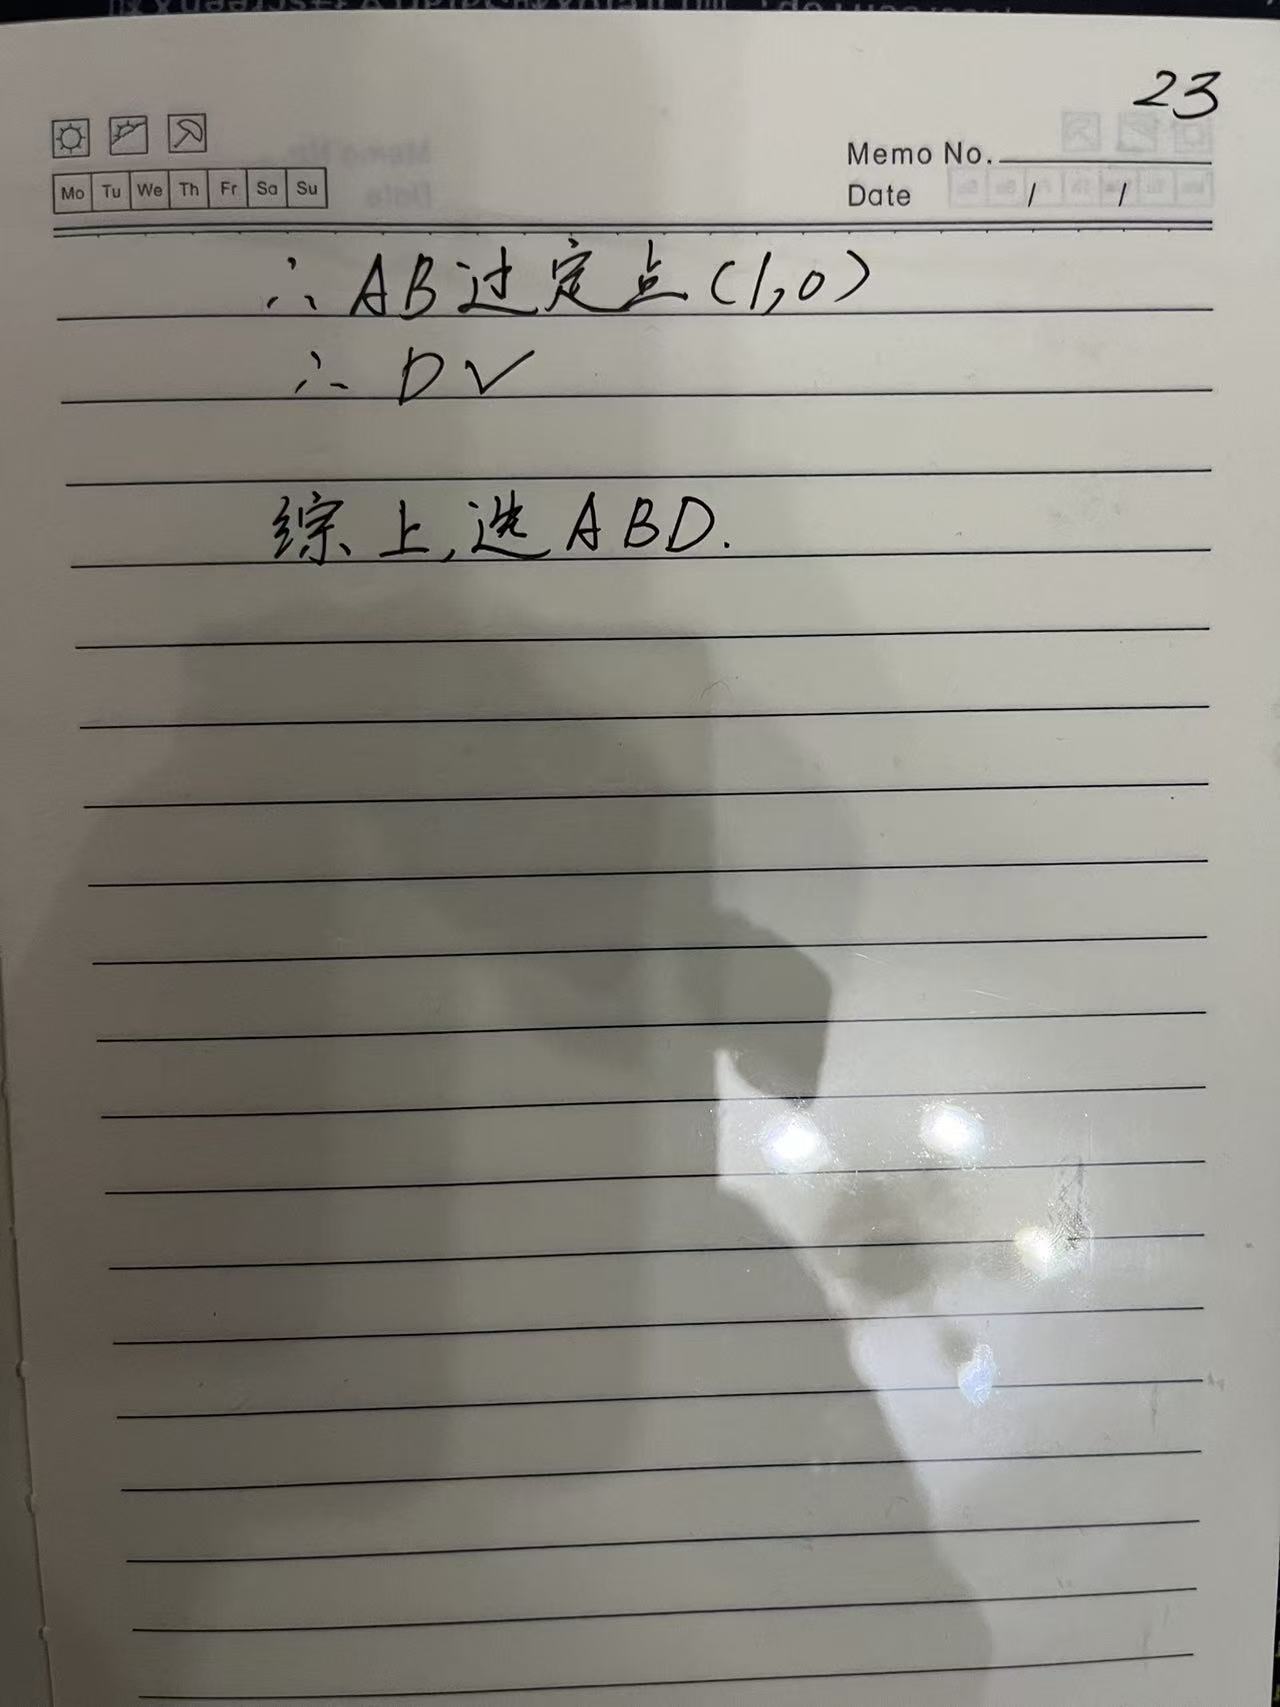 23
Memo No.
Mo Tu We Th Fr Sa Su
Date / /
∴ AB过定点(1,0)
∴ D✓
综上,选ABD.